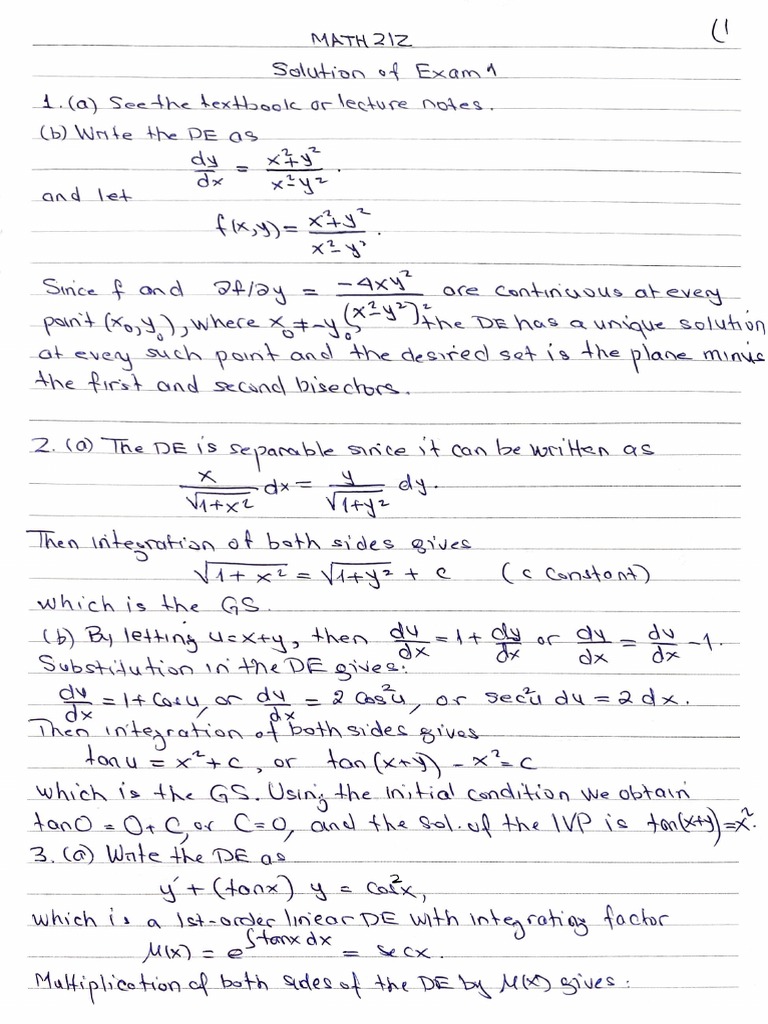 (1
MATH 212
Solution of Exam 1
1. (a) See the textbook or lecture notes.
(b) Write the DE as
dy/dx = (x²+y²)/(x²-y²).
and let
f(x,y) = (x²+y²)/(x²-y²).
Since f and ∂f/∂y = -4xy²/(x²-y²)² are continuous at every
point (x₀,y₀), where x₀≠-y₀, the DE has a unique solution
at every such point and the desired set is the plane minus
the first and second bisectors.
2. (a) The DE is separable since it can be written as
x/√(1+x²) dx = y/√(1+y²) dy.
Then integration of both sides gives
√(1+x²) = √(1+y²) + c (c constant)
which is the GS.
(b) By letting u=x+y, then du/dx = 1 + dy/dx or dy/dx = du/dx - 1.
Substitution in the DE gives:
du/dx = 1+cos u, or du/dx = 2 cos²u, or sec²u du = 2 dx.
Then integration of both sides gives
tan u = x²+c, or tan(x+y) - x² = c
which is the GS. Using the initial condition we obtain
tan 0 = 0 + C, or C=0, and the sol. of the IVP is tan(x+y)=x².
3. (a) Write the DE as
y' + (tanx) y = cos²x,
which is a 1st-order linear DE with integrating factor
μ(x) = e^∫tanx dx = secx.
Multiplication of both sides of the DE by μ(x) gives: